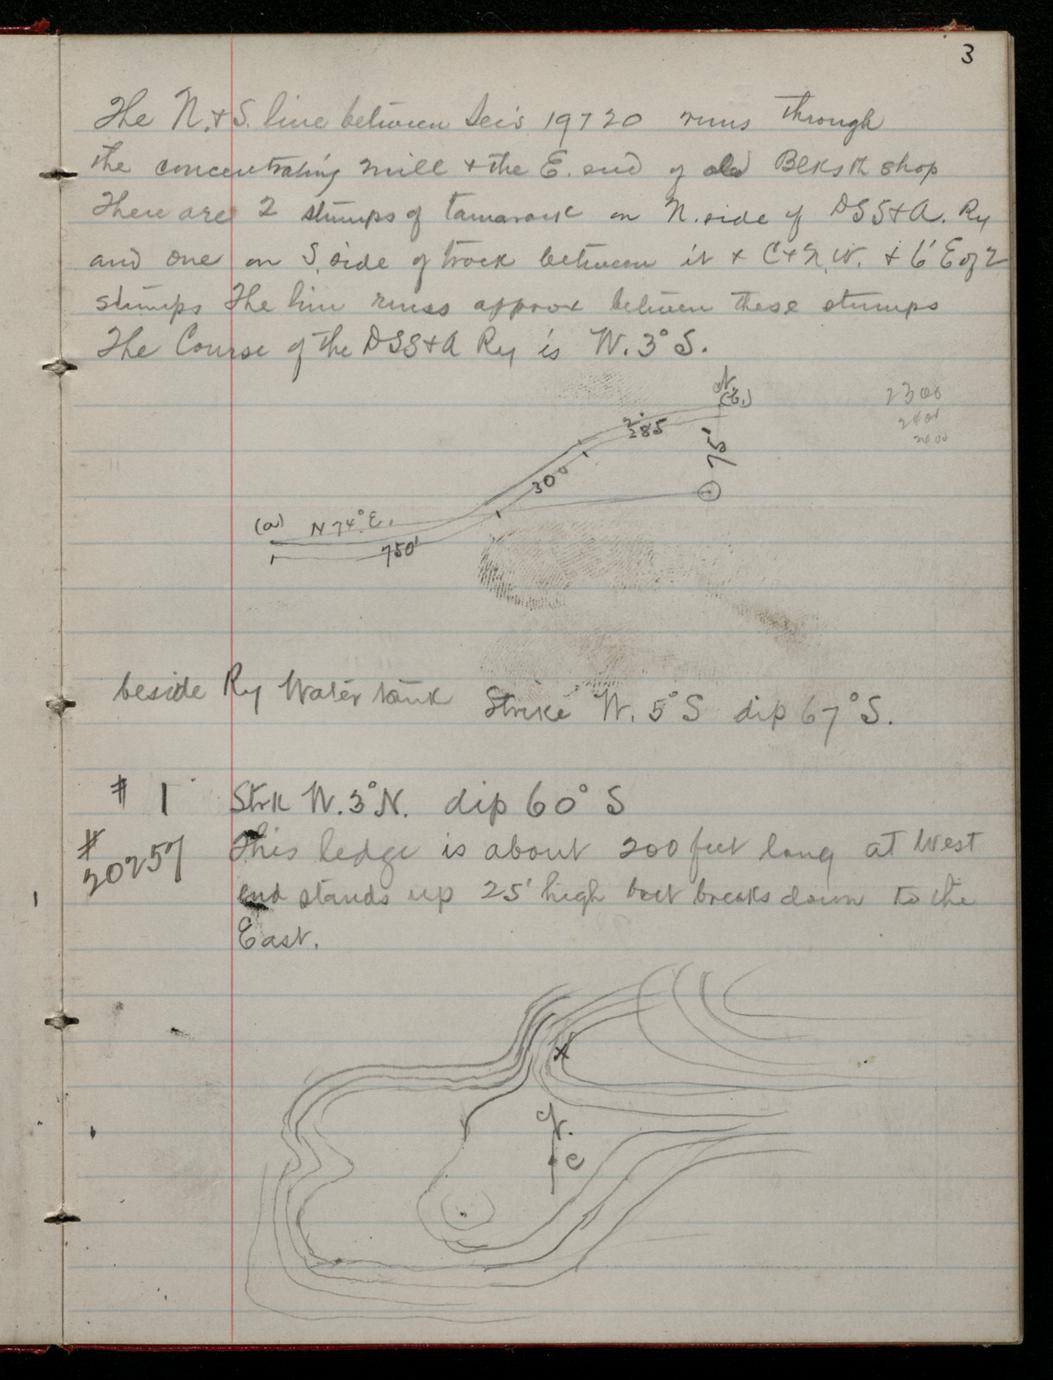 3
The N. & S. line between Sec's 19 & 20 runs through
the concentrating mill & the E. end of old Blksth shop
There are 2 stumps of tamarack on N. side of DSS&A. Ry
and one on S. side of track between it & C&N.W. & 6' E of 2
stumps The line runs approx between these stumps
The Course of the DSS&A Ry is W. 3° S.
N.
2300
2400
285
75'
300
(a) N 74° E.
750'
beside Ry Water tank Strike W. 5° S dip 67° S.
# 1 Strk W. 3° N. dip 60° S
# 20257
This ledge is about 200 feet long at West
end stands up 25' high but breaks down to the
East.
X
N.